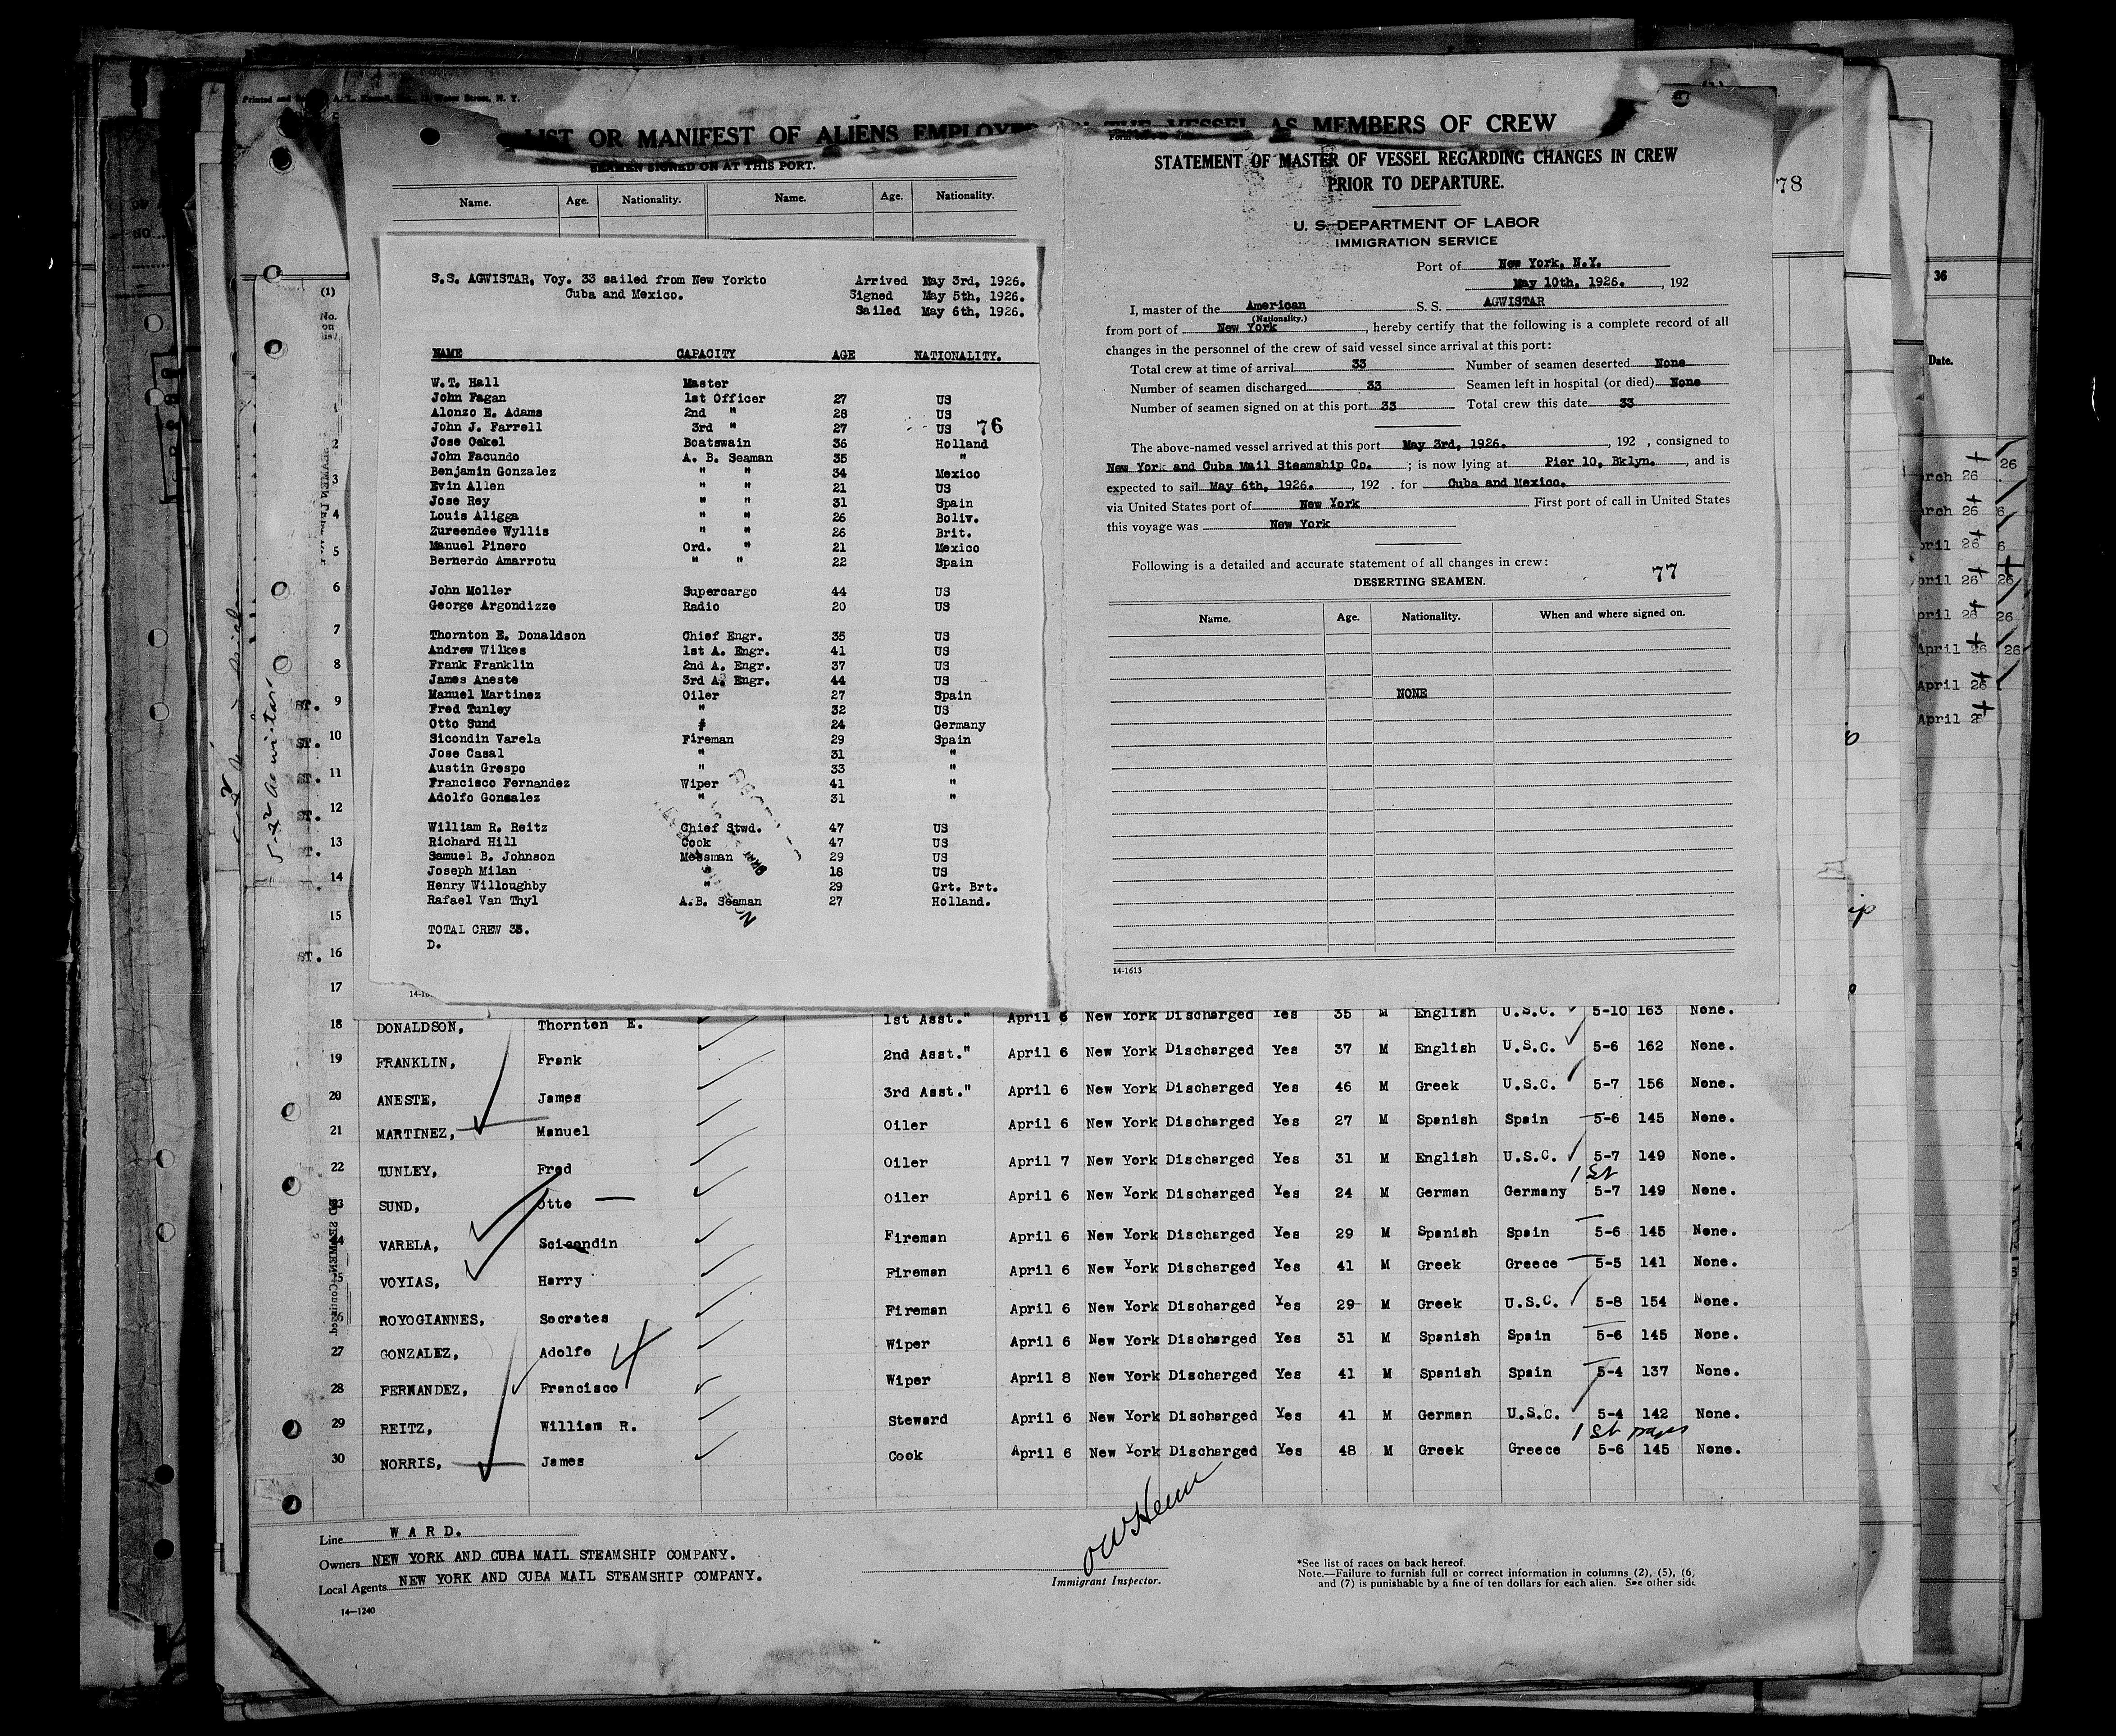 Printed and
Water Street, N. Y.
LIST OR MANIFEST OF ALIENS EMPLOYED ON THE VESSEL AS MEMBERS OF CREW
SEAMEN SIGNED ON AT THIS PORT.
Name. Age. Nationality. Name. Age. Nationality.
S.S. AGWISTAR, Voy. 33 sailed from New Yorkto Arrived May 3rd, 1926.
Cuba and Mexico. Signed May 5th, 1926.
Sailed May 6th, 1926.
NAME CAPACITY AGE NATIONALITY.
W.T. Hall Master
John Fagan 1st Officer 27 US
Alonzo E. Adams 2nd " 28 US
John J. Farrell 3rd " 27 US 76
Jose Oakel Boatswain 36 Holland
John Facundo A. B. Seaman 35 "
Benjamin Gonzalez " " 34 Mexico
Evin Allen " " 21 US
Jose Rey " " 31 Spain
Louis Aligga " " 26 Boliv.
Zureendee Wyllis " " 26 Brit.
Manuel Pinero Ord. " 21 Mexico
Bernerdo Amarrotu " " 22 Spain
John Moller Supercargo 44 US
George Argondizze Radio 20 US
Thornton E. Donaldson Chief Engr. 35 US
Andrew Wilkes 1st A. Engr. 41 US
Frank Franklin 2nd A. Engr. 37 US
James Aneste 3rd A. Engr. 44 US
Manuel Martinez Oiler 27 Spain
Fred Tunley " 32 US
Otto Sund " 24 Germany
Sicondin Varela Fireman 29 Spain
Jose Casal " 31 "
Austin Grespo " 33 "
Francisco Fernandez Wiper 41 "
Adolfo Gonsalez " 31 "
William R. Reitz Chief Stwd. 47 US
Richard Hill Cook 47 US
Samuel B. Johnson Messman 29 US
Joseph Milan " 18 US
Henry Willoughby " 29 Grt. Brt.
Rafael Van Thyl A.B. Seaman 27 Holland.
TOTAL CREW 33.
D.
STATEMENT OF MASTER OF VESSEL REGARDING CHANGES IN CREW
PRIOR TO DEPARTURE.
78
U. S. DEPARTMENT OF LABOR
IMMIGRATION SERVICE
Port of New York, N.Y.
May 10th, 1926. , 192
I, master of the American S. S. AGWISTAR
(Nationality.)
from port of New York , hereby certify that the following is a complete record of all
changes in the personnel of the crew of said vessel since arrival at this port:
Total crew at time of arrival 33 Number of seamen deserted None
Number of seamen discharged 33 Seamen left in hospital (or died) None
Number of seamen signed on at this port 33 Total crew this date 33
The above-named vessel arrived at this port May 3rd, 1926. , 192 , consigned to
New York and Cuba Mail Steamship Co. ; is now lying at Pier 10, Bklyn. , and is
expected to sail May 6th, 1926. , 192 . for Cuba and Mexico.
via United States port of New York First port of call in United States
this voyage was New York
Following is a detailed and accurate statement of all changes in crew:
DESERTING SEAMEN. 77
Name. Age. Nationality. When and where signed on.
NONE
14-1613
36
Date.
April 26
April 26
(1)
No. on
2
3
4
5
6
7
8
ST. 9
ST. 10
ST. 11
ST. 12
ST. 13
14
15
ST. 16
17
18 DONALDSON, Thornton E. 1st Asst." April 6 New York Discharged Yes 35 M English U.S.C. 5-10 163 None.
19 FRANKLIN, Frank 2nd Asst." April 6 New York Discharged Yes 37 M English U.S.C. 5-6 162 None.
20 ANESTE, James 3rd Asst." April 6 New York Discharged Yes 46 M Greek U.S.C. 5-7 156 None.
21 MARTINEZ, Manuel Oiler April 6 New York Discharged Yes 27 M Spanish Spain 5-6 145 None.
22 TUNLEY, Fred Oiler April 7 New York Discharged Yes 31 M English U.S.C. 5-7 149 None.
1 St
23 SUND, Otto Oiler April 6 New York Discharged Yes 24 M German Germany 5-7 149 None.
24 VARELA, Scicondin Fireman April 6 New York Discharged Yes 29 M Spanish Spain 5-6 145 None.
25 VOYIAS, Harry Fireman April 6 New York Discharged Yes 41 M Greek Greece 5-5 141 None.
26 ROYOGIANNES, Socrates Fireman April 6 New York Discharged Yes 29 M Greek U.S.C. 5-8 154 None.
27 GONZALEZ, Adolfo Wiper April 6 New York Discharged Yes 31 M Spanish Spain 5-6 145 None.
28 FERNANDEZ, Francisco Wiper April 8 New York Discharged Yes 41 M Spanish Spain 5-4 137 None.
29 REITZ, William R. Steward April 6 New York Discharged Yes 41 M German U.S.C. 5-4 142 None.
1 St
30 NORRIS, James Cook April 6 New York Discharged Yes 48 M Greek Greece 5-6 145 None.
Line WARD.
Owners NEW YORK AND CUBA MAIL STEAMSHIP COMPANY.
Local Agents NEW YORK AND CUBA MAIL STEAMSHIP COMPANY.
14—1240
Immigrant Inspector.
*See list of races on back hereof.
Note.—Failure to furnish full or correct information in columns (2), (5), (6)
and (7) is punishable by a fine of ten dollars for each alien. See other side